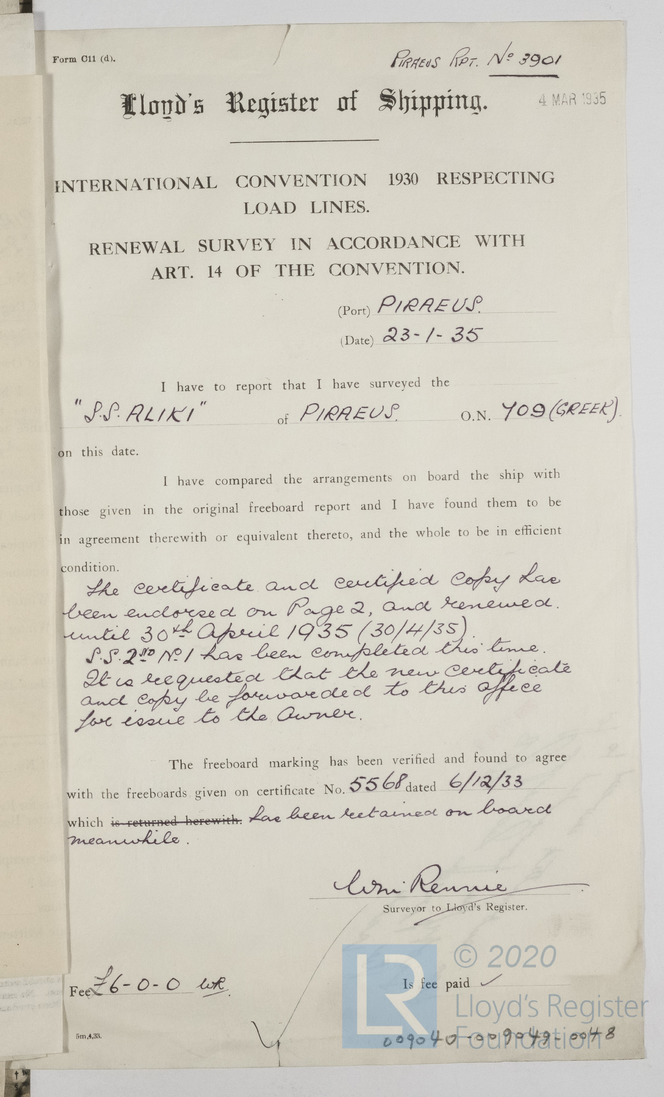 Form C11 (d).
PIRAEUS RPT. No 3901
Lloyd's Register of Shipping.
4 MAR 1935
INTERNATIONAL CONVENTION 1930 RESPECTING
LOAD LINES.
RENEWAL SURVEY IN ACCORDANCE WITH
ART. 14 OF THE CONVENTION.
(Port) PIRAEUS.
(Date) 23-1-35
I have to report that I have surveyed the
"S.S. ALIKI" of PIRAEUS. O.N. 709 (GREEK).
on this date.
I have compared the arrangements on board the ship with
those given in the original freeboard report and I have found them to be
in agreement therewith or equivalent thereto, and the whole to be in efficient
condition.
The certificate and certified copy has
been endorsed on Page 2, and renewed.
until 30th April 1935 (30/4/35).
S.S. 2ND No 1 has been completed this time.
It is requested that the new certificate
and copy be forwarded to this office
for issue to the Owner.
The freeboard marking has been verified and found to agree
with the freeboards given on certificate No. 5568 dated 6/12/33
which is returned herewith. has been retained on board
meanwhile.
Wm Rennie
Surveyor to Lloyd's Register.
Fee £6-0-0 WR.
Is fee paid ✓
5m,4,33.
© 2020
LR
Lloyd's Register
Foundation
009040-009049-0048